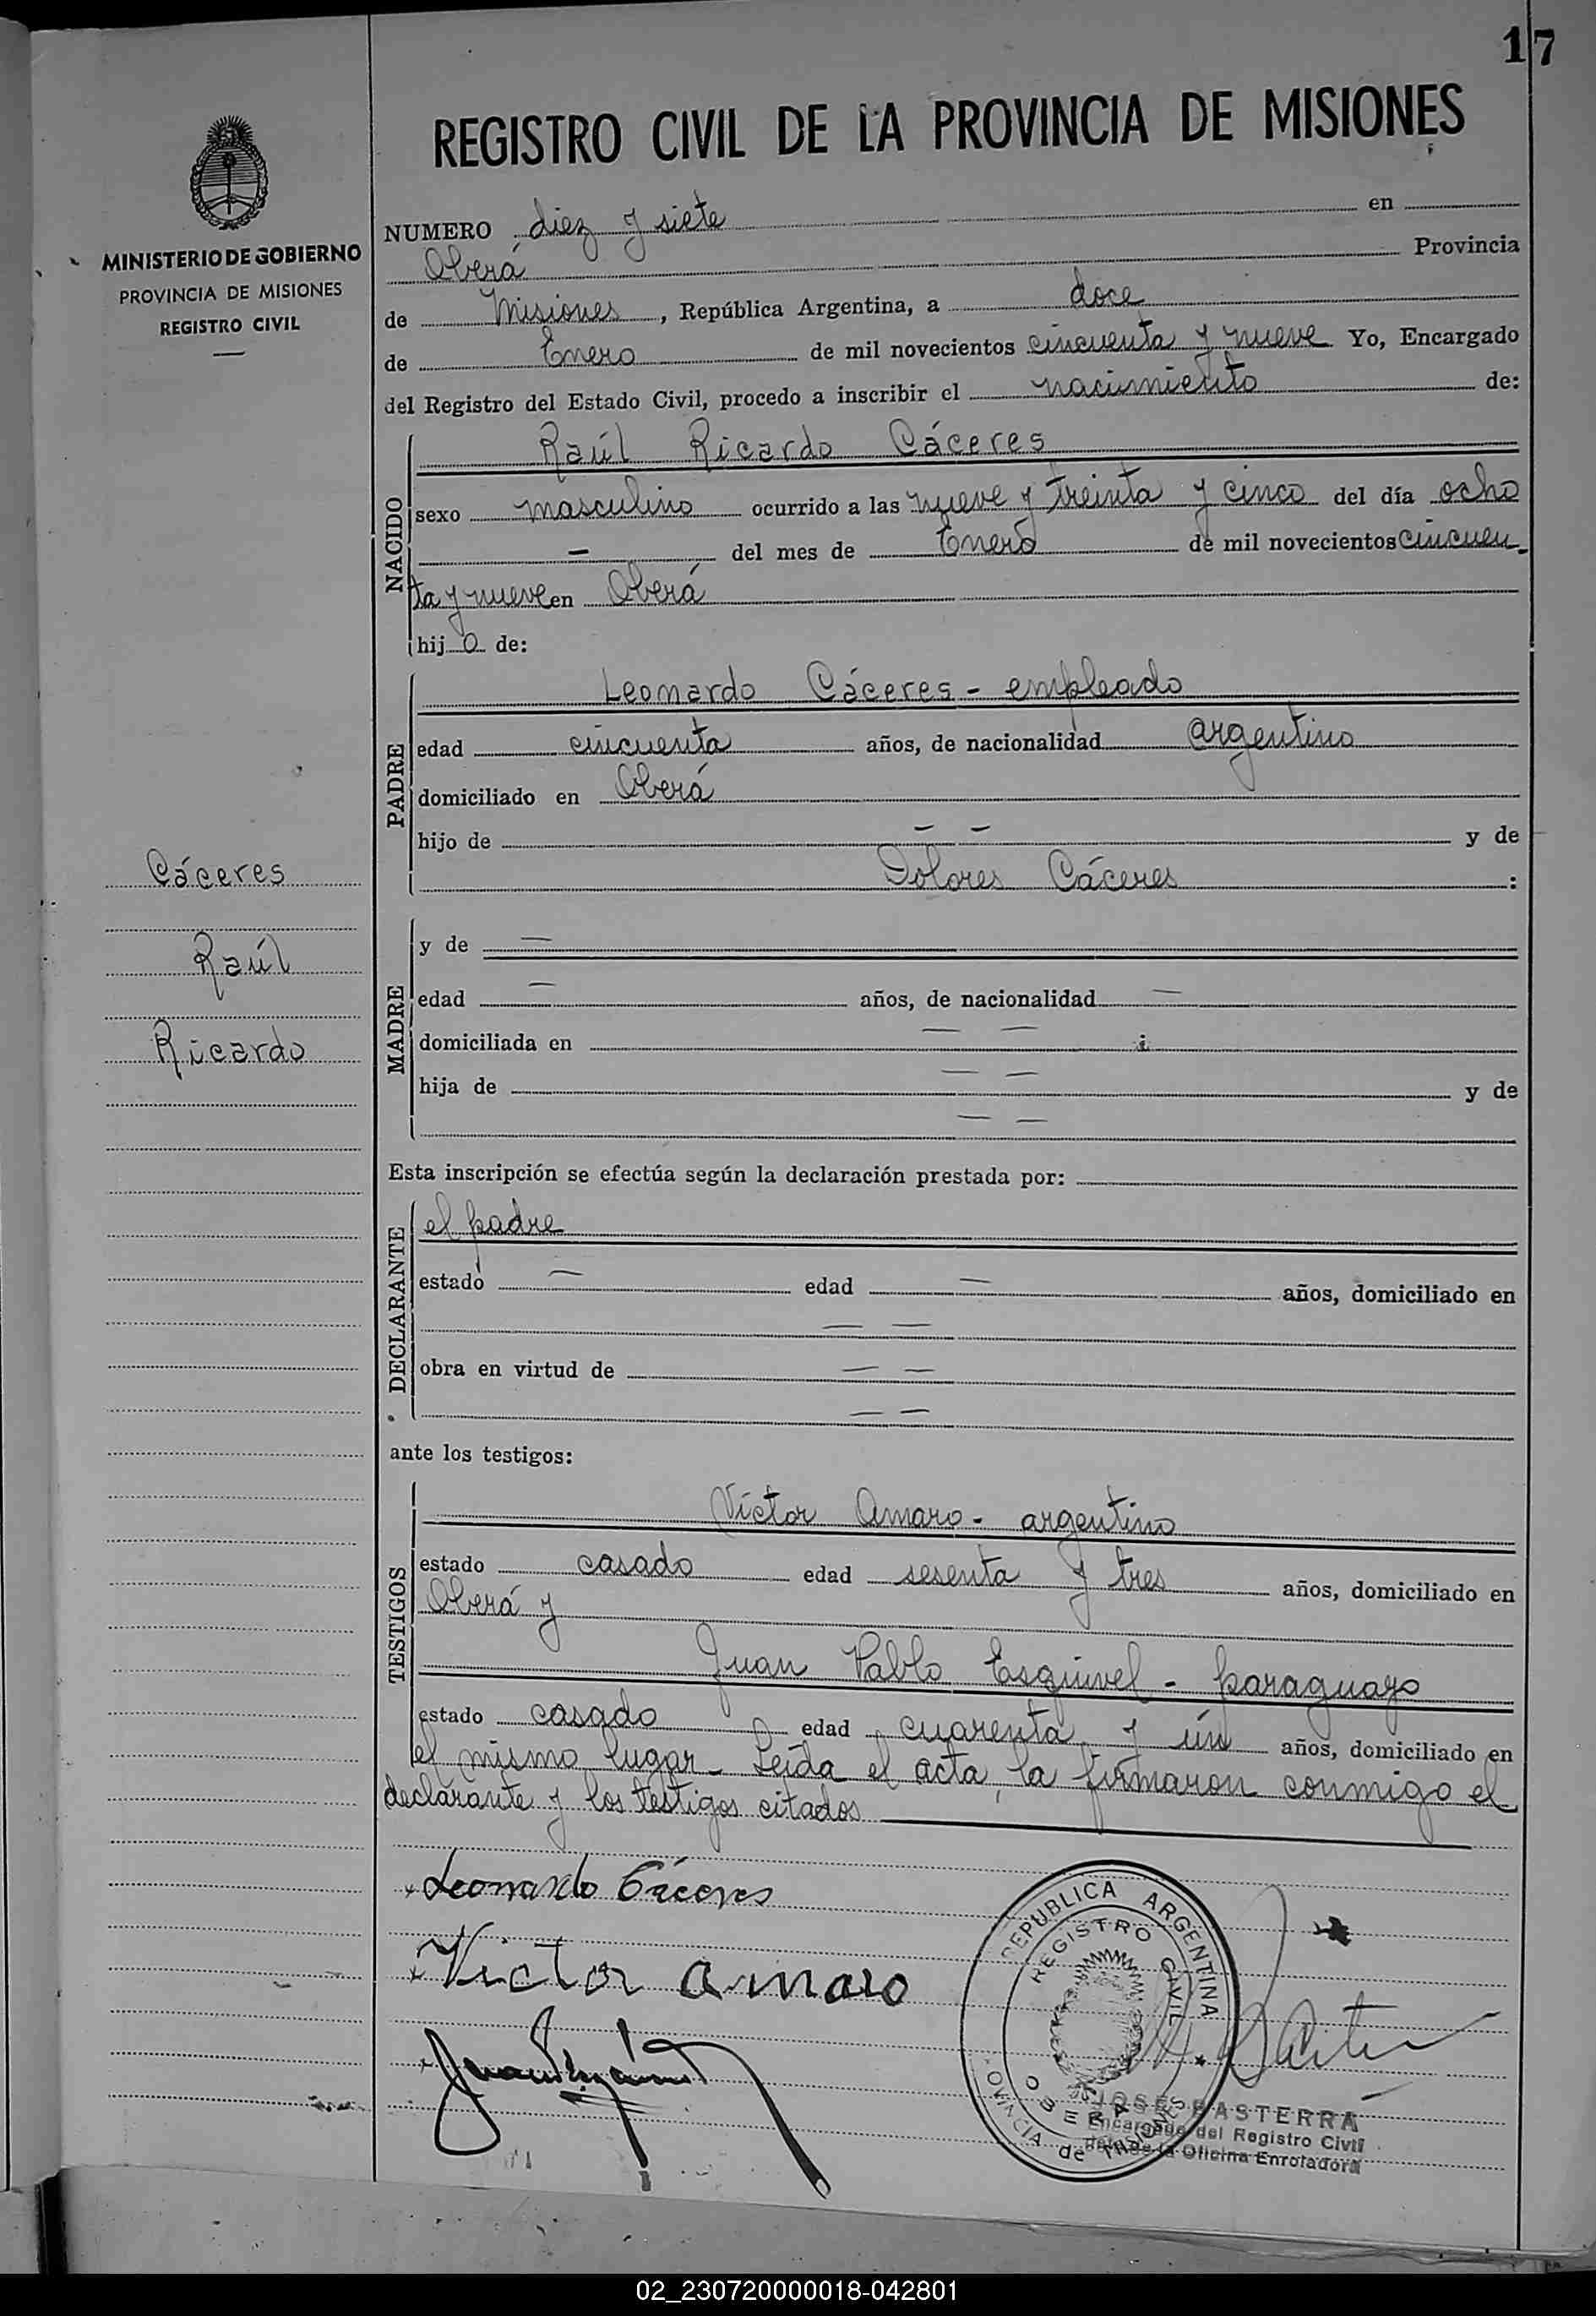 17
REGISTRO CIVIL DE LA PROVINCIA DE MISIONES
MINISTERIO DE GOBIERNO
PROVINCIA DE MISIONES
REGISTRO CIVIL
NUMERO diez y siete en
Oberá Provincia
de Misiones, República Argentina, a doce
de Enero de mil novecientos cincuenta y nueve Yo, Encargado
del Registro del Estado Civil, procedo a inscribir el nacimiento de:
NACIDO
Raúl Ricardo Cáceres
sexo masculino ocurrido a las nueve y treinta y cinco del día ocho
— del mes de Enero de mil novecientos cincuen-
ta y nueve en Oberá
hijo de:
PADRE
Leonardo Cáceres - empleado
edad cincuenta años, de nacionalidad argentino
domiciliado en Oberá
hijo de — — y de
Dolores Cáceres :
Cáceres
Raúl
Ricardo
MADRE
y de —
edad — años, de nacionalidad —
domiciliada en — —
hija de — — y de
— —
Esta inscripción se efectúa según la declaración prestada por:
DECLARANTE
el padre
estado — edad — años, domiciliado en
— —
obra en virtud de — —
— —
ante los testigos:
TESTIGOS
Víctor Amaro - argentino
estado casado edad sesenta y tres años, domiciliado en
Oberá y
Juan Pablo Esquivel - paraguayo
estado casado edad cuarenta y ún años, domiciliado en
el mismo lugar - Leída el acta, la firmaron conmigo el
declarante y los testigos citados
Leonardo Cáceres
Victor amaro
REPUBLICA ARGENTINA
REGISTRO CIVIL
OBERA
PROVINCIA de MISIONES
JOSE BASTERRA
Encargado del Registro Civil
Jefe de la Oficina Enroladora
02_230720000018-042801